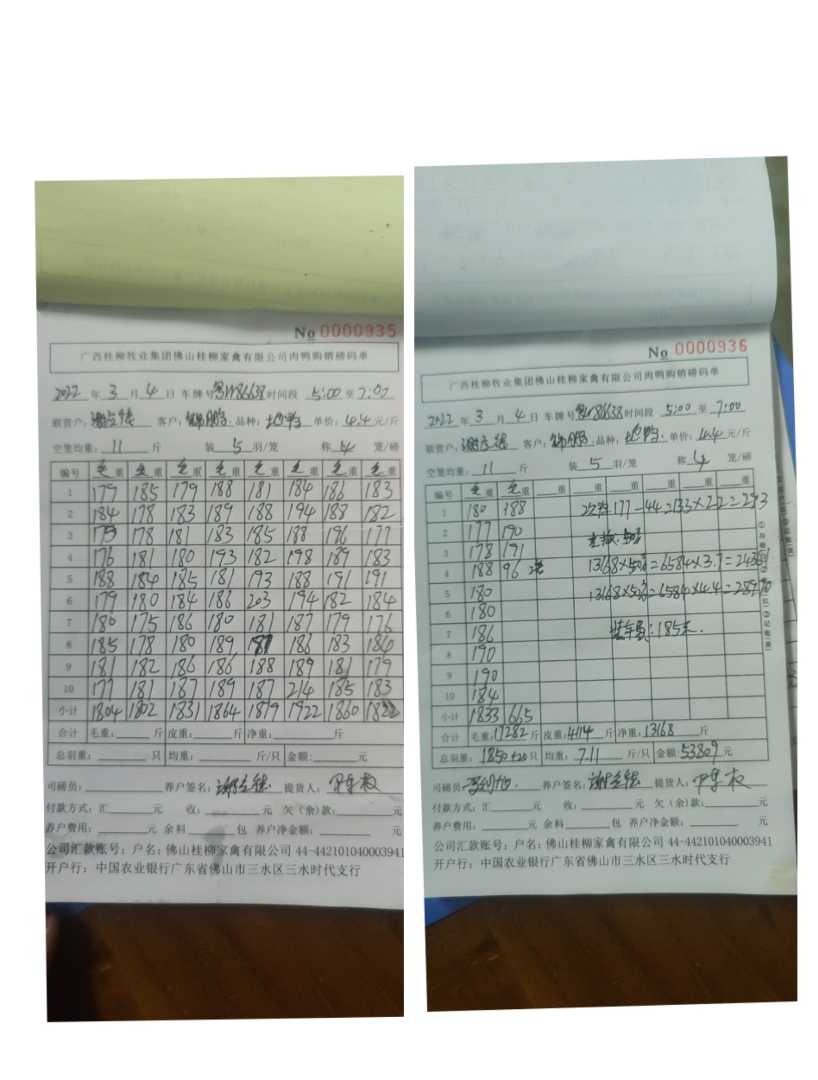 No 0000935
广西桂柳牧业集团佛山桂柳家禽有限公司肉鸭购销磅码单
2022 年 3 月 4 日 车牌号 粤W86638 时间段 5:00 至 7:00
联营户: 客户: 品种: 单价: 4.4 元/斤
空笼均重: 11 斤 装 5 羽/笼 称 4 笼/磅
编号 毛重 毛重 毛重 毛重 毛重 毛重 毛重 毛重
1 179 185 179 188 181 184 186 183
2 184 178 183 189 188 194 188 182
3 179 178 181 183 185 188 196 177
4 176 181 180 193 182 198 189 183
5 188 184 185 181 193 188 191 191
6 179 180 184 186 203 194 182 184
7 180 175 186 180 181 187 179 176
8 185 178 180 189 186 183 186
9 181 182 186 186 188 189 181 179
10 177 181 187 189 187 214 185 183
小计 1804 1802 1831 1864 1879 1922 1860
合计 毛重: 斤 皮重: 斤 净重: 斤
总羽重: 只 均重: 斤/只 金额: 元
司磅员: 养户签名: 提货人:
付款方式: 汇 元 收: 元 欠(余)款: 元
养户费用: 元 余料 包 养户净金额: 元
公司汇款账号: 户名: 佛山桂柳家禽有限公司 44-442101040003941
开户行: 中国农业银行广东省佛山市三水区三水时代支行
No 0000936
广西桂柳牧业集团佛山桂柳家禽有限公司肉鸭购销磅码单
2022 年 3 月 4 日 车牌号 粤W86638 时间段 5:00 至 7:00
联营户: 客户: 品种: 单价: 4.4 元/斤
空笼均重: 11 斤 装 5 羽/笼 称 4 笼/磅
编号 毛重 毛重 重 重 重 重 重
1 180 188 177-44=133×2.2=293
2 177 190
3 178 191
4 188 96 13168×50%=6584×3.7=24361
5 180 13168×50%=6584×4.4=28970
6 180
7 186 装车费:185末.
8 190
9 190
10 184
小计 1833 665
合计 毛重: 17282 斤 皮重: 4114 斤 净重: 13168 斤
总羽重: 1850+20 只 均重: 7.11 斤/只 金额: 53809 元
司磅员: 养户签名: 提货人:
付款方式: 汇 元 收: 元 欠(余)款: 元
养户费用: 元 余料 包 养户净金额: 元
公司汇款账号: 户名: 佛山桂柳家禽有限公司 44-442101040003941
开户行: 中国农业银行广东省佛山市三水区三水时代支行